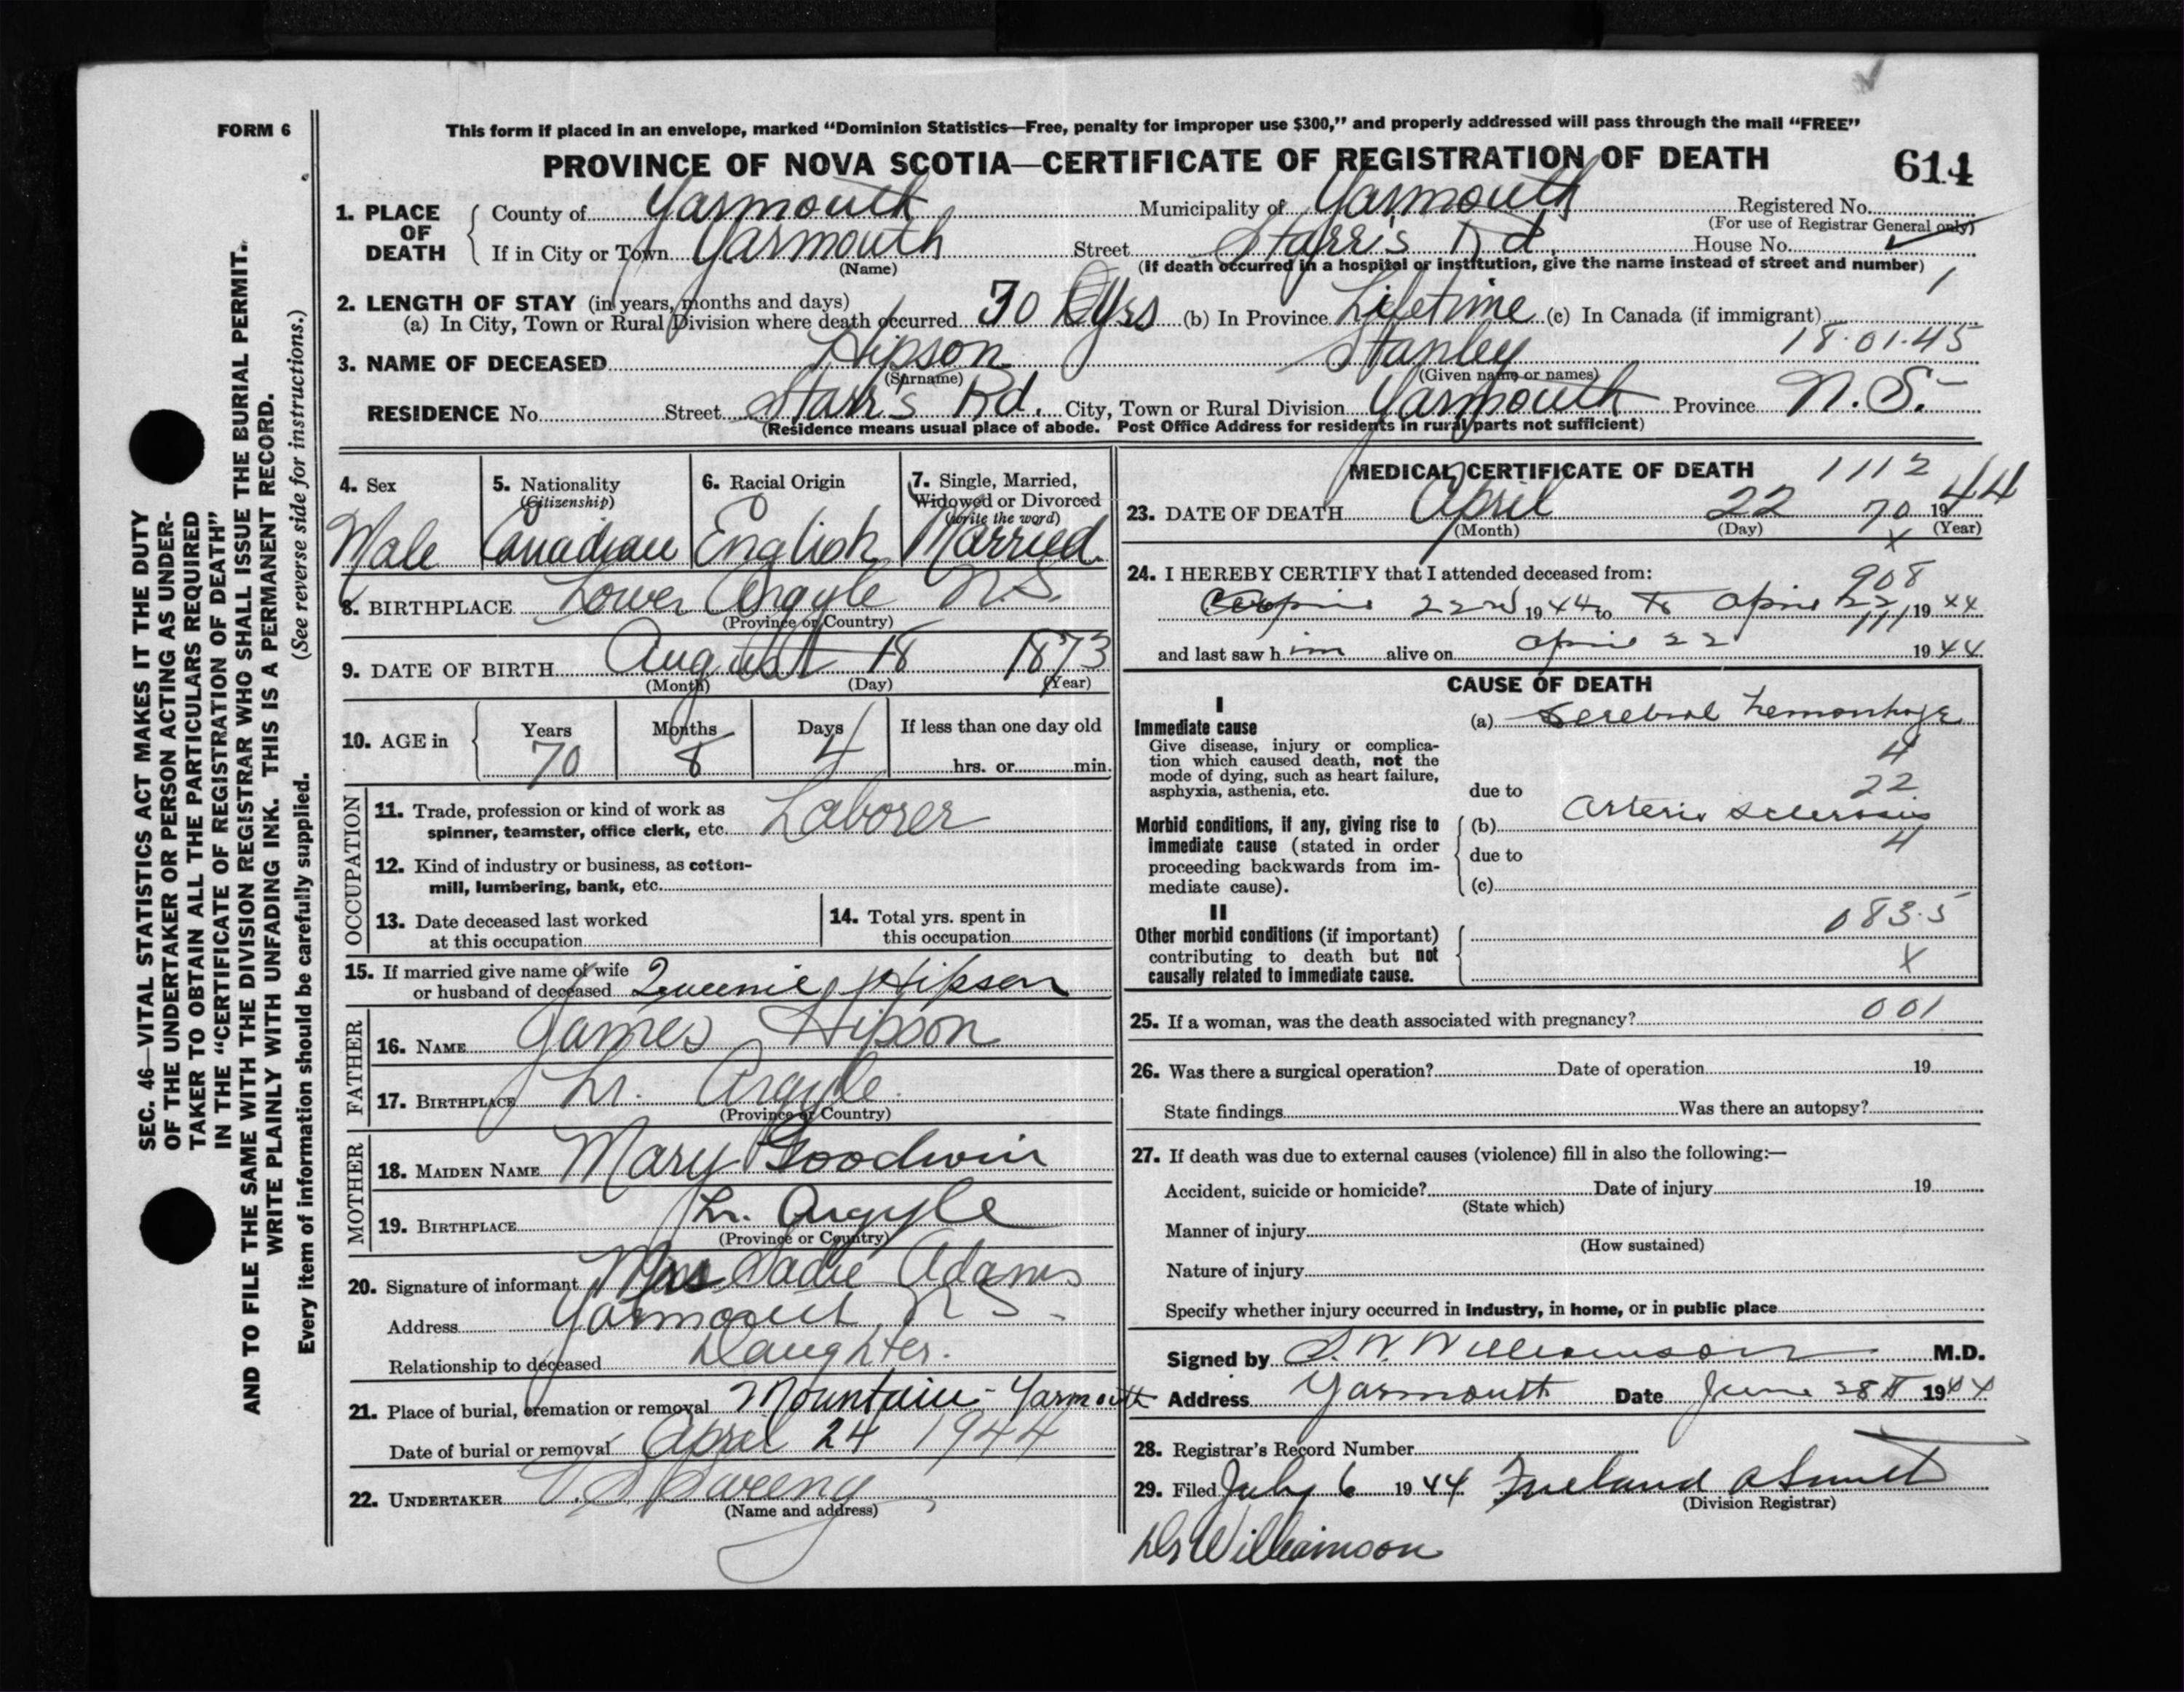 FORM 6
This form if placed in an envelope, marked “Dominion Statistics—Free, penalty for improper use $300,” and properly addressed will pass through the mail “FREE”
PROVINCE OF NOVA SCOTIA—CERTIFICATE OF REGISTRATION OF DEATH 614
1. PLACE OF DEATH
County of Yarmouth Municipality of Yarmouth Registered No.
(For use of Registrar General only)
If in City or Town Yarmouth Street Starr's Rd. House No.
(Name) (If death occurred in a hospital or institution, give the name instead of street and number) 1
2. LENGTH OF STAY (in years, months and days)
(a) In City, Town or Rural Division where death occurred 30 yrs (b) In Province Lifetime (c) In Canada (if immigrant)
18.01.45
3. NAME OF DECEASED Hipson Stanley
(Surname) (Given name or names)
RESIDENCE No. Street Starr's Rd. City, Town or Rural Division Yarmouth Province N.S.
(Residence means usual place of abode. Post Office Address for residents in rural parts not sufficient)
4. Sex
Male
5. Nationality
(Citizenship)
Canadian
6. Racial Origin
English
7. Single, Married,
Widowed or Divorced
(write the word)
Married.
8. BIRTHPLACE Lower Argyle N.S.
(Province or Country)
9. DATE OF BIRTH August 18 1873
(Month) (Day) (Year)
10. AGE in
Years Months Days If less than one day old
70 8 4 hrs. or min.
OCCUPATION
11. Trade, profession or kind of work as
spinner, teamster, office clerk, etc. Laborer
12. Kind of industry or business, as cotton-
mill, lumbering, bank, etc.
13. Date deceased last worked
at this occupation
14. Total yrs. spent in
this occupation
15. If married give name of wife
or husband of deceased Queenie Hipson
FATHER
16. NAME James Hipson
17. BIRTHPLACE Lr. Argyle.
(Province or Country)
MOTHER
18. MAIDEN NAME Mary Goodwin
19. BIRTHPLACE Lr. Argyle
(Province or Country)
20. Signature of informant Mrs Sadie Adams
Address Yarmouth N S.
Relationship to deceased Daughter.
21. Place of burial, cremation or removal Mountain - Yarmouth
Date of burial or removal April 24 1944
22. UNDERTAKER V S Sweeny
(Name and address)
MEDICAL CERTIFICATE OF DEATH 1112
23. DATE OF DEATH April 22 70 1944
(Month) (Day) x (Year)
24. I HEREBY CERTIFY that I attended deceased from:
908
April 22nd 1944 to April 22 1944
111
and last saw him alive on April 22 1944
CAUSE OF DEATH
I
Immediate cause
Give disease, injury or complica-
tion which caused death, not the
mode of dying, such as heart failure,
asphyxia, asthenia, etc.
(a) Cerebral hemorrhage
4
due to 22
Morbid conditions, if any, giving rise to
immediate cause (stated in order
proceeding backwards from im-
mediate cause).
(b) Arterio sclerosis
due to 4
(c)
II
Other morbid conditions (if important)
contributing to death but not
causally related to immediate cause.
083.5
X
25. If a woman, was the death associated with pregnancy? 001
26. Was there a surgical operation? Date of operation 19
State findings Was there an autopsy?
27. If death was due to external causes (violence) fill in also the following:—
Accident, suicide or homicide? Date of injury 19
(State which)
Manner of injury
(How sustained)
Nature of injury
Specify whether injury occurred in industry, in home, or in public place
Signed by S. W. Williamson M.D.
Address Yarmouth Date June 28th 1944
28. Registrar's Record Number
29. Filed July 6 1944
(Division Registrar)
Dr Williamson
SEC. 46—VITAL STATISTICS ACT MAKES IT THE DUTY
OF THE UNDERTAKER OR PERSON ACTING AS UNDER-
TAKER TO OBTAIN ALL THE PARTICULARS REQUIRED
IN THE “CERTIFICATE OF REGISTRATION OF DEATH”
AND TO FILE THE SAME WITH THE DIVISION REGISTRAR WHO SHALL ISSUE THE BURIAL PERMIT.
WRITE PLAINLY WITH UNFADING INK. THIS IS A PERMANENT RECORD.
Every item of information should be carefully supplied. (See reverse side for instructions.)